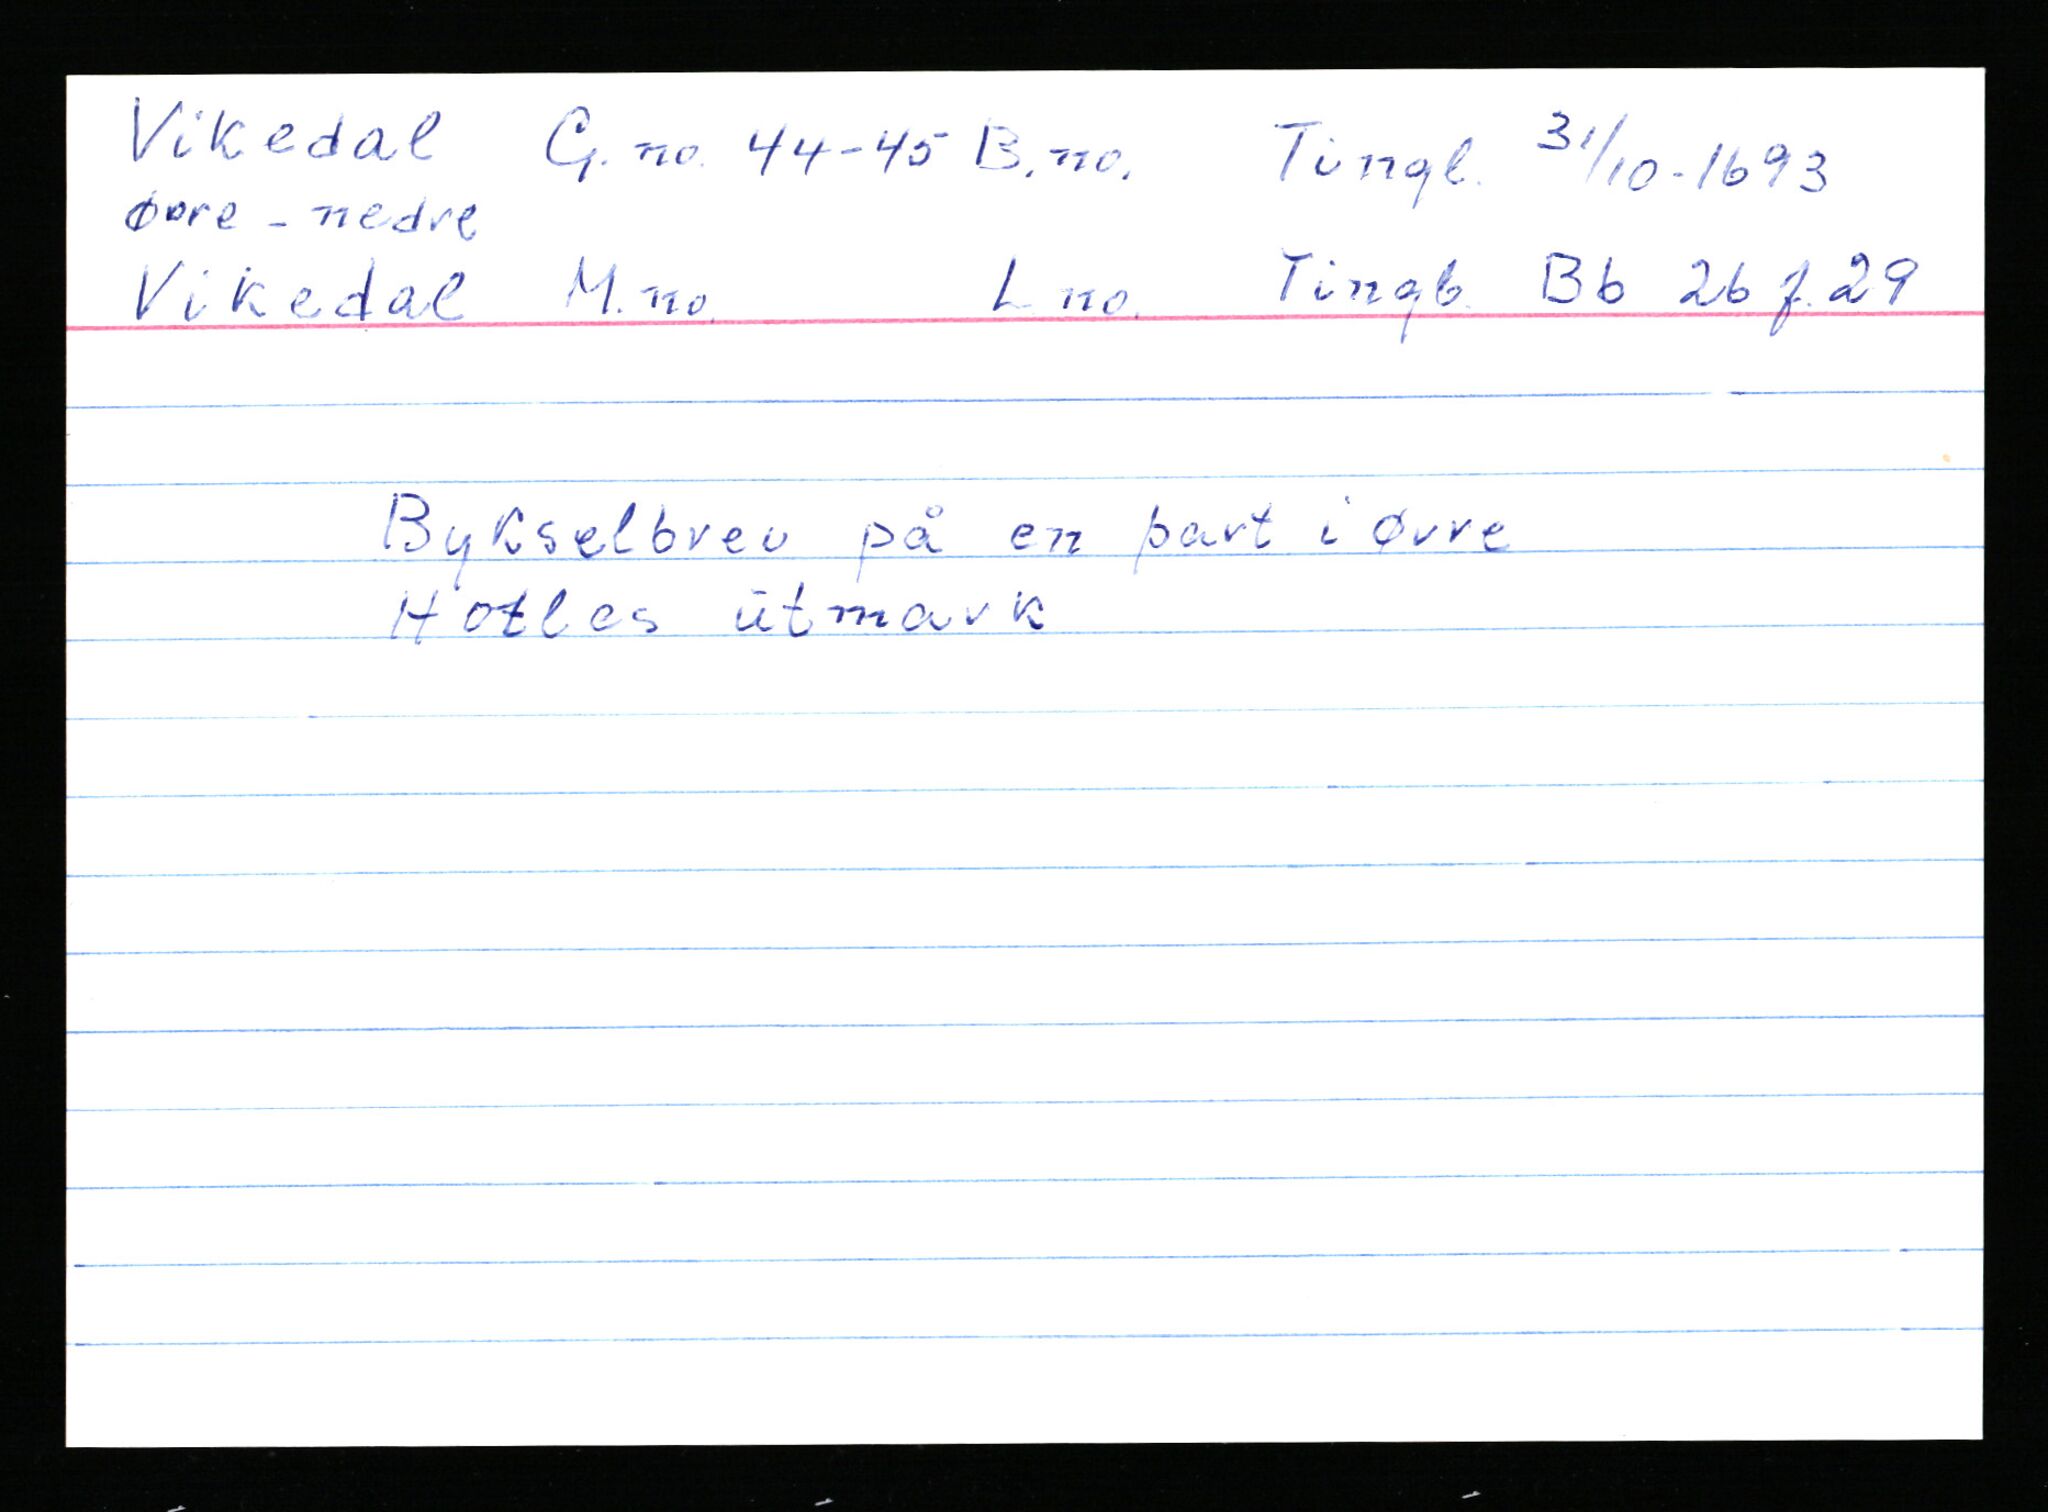 Vikedal G.no. 44-45 B.no. Tingl. 31/10-1693
øvre - nedre
Vikedal M.no. L no. Tingb. Bb 26 f. 29
Bykselbrev på en part i øvre
Hotles ūtmark